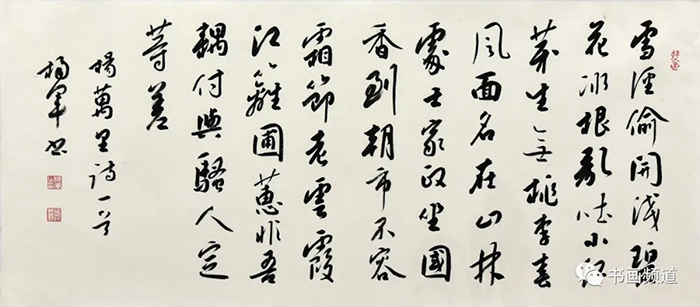 雪徑偷開淺碧
花冰根亂吐小紅
芽生無桃李春
風面名在山林
處士家政坐國
香到朝市不容
霜節老雲霞
江蘺圃蕙非吾
耦付與騷人定
等差
楊萬里詩一首
楊軍書
书画频道